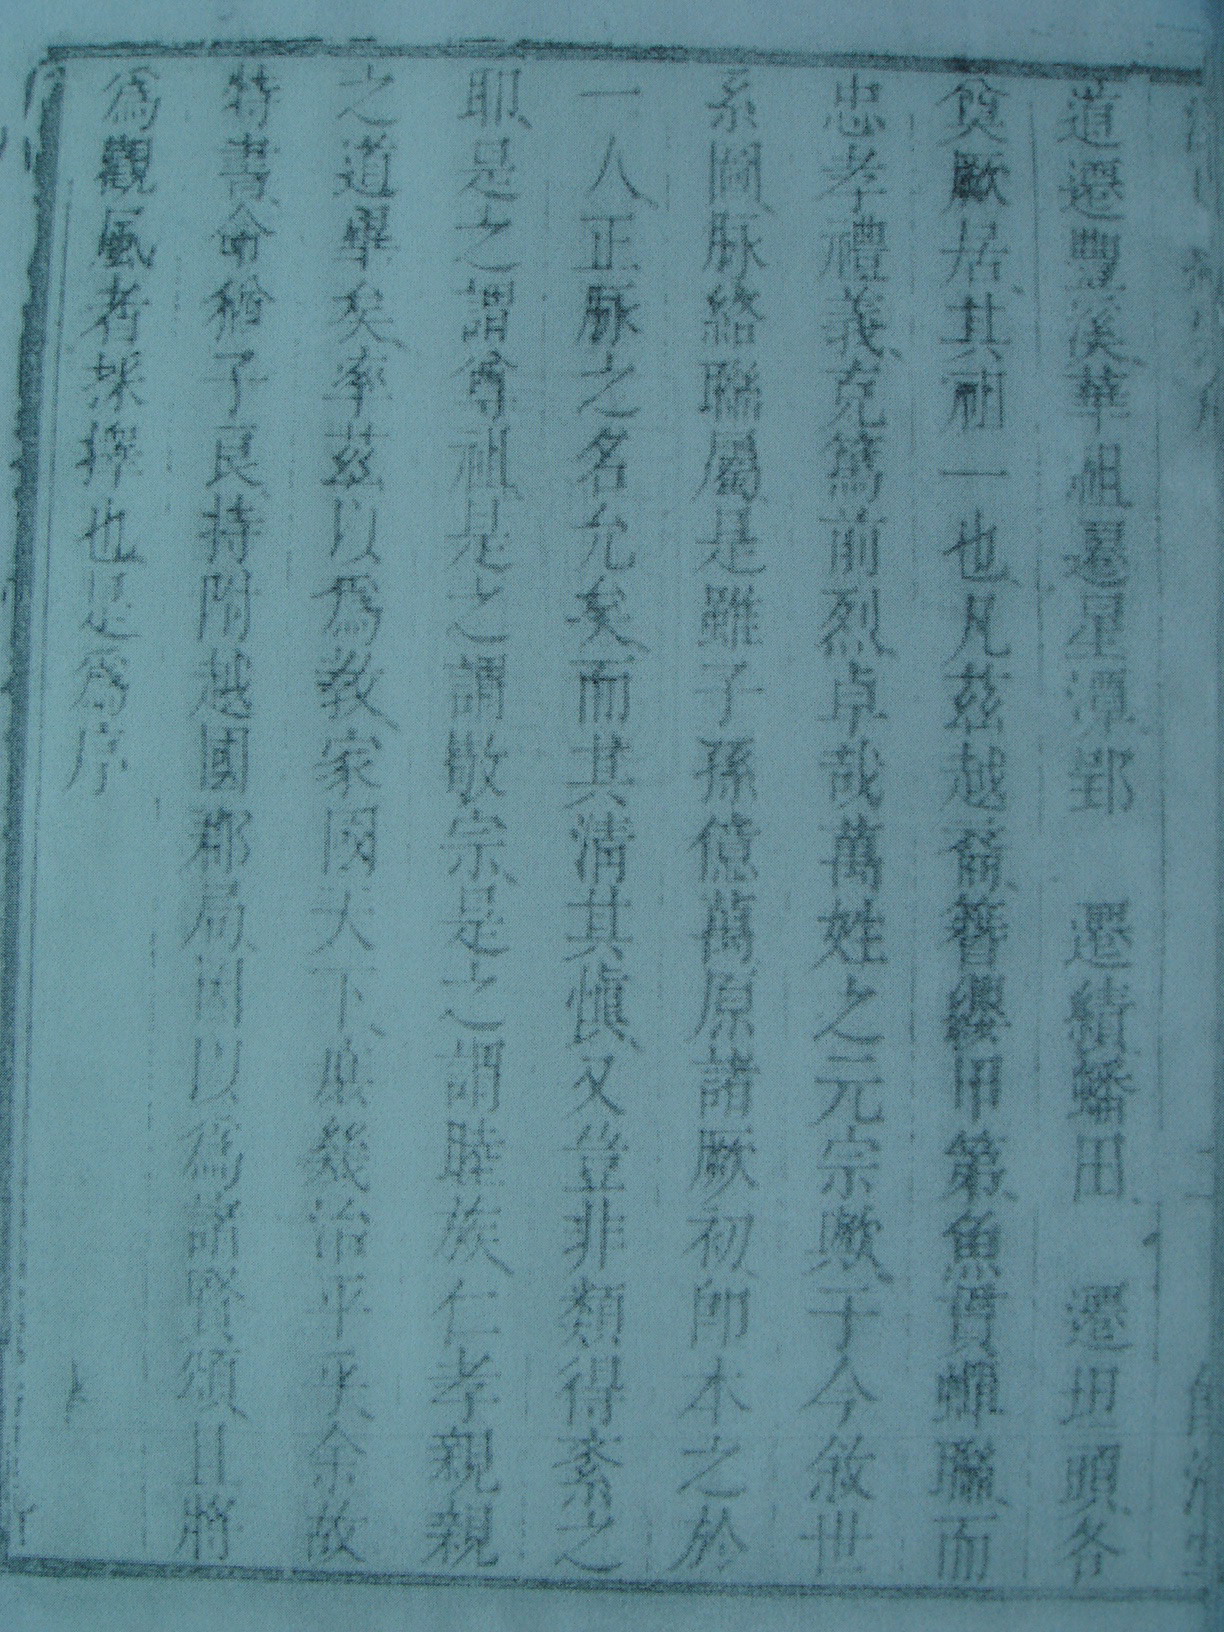 道遷豐溪華祖遷星潭郢　遷績蟠田　遷坦頭各
奠厥居其祖一也凡茲越裔簪纓甲第魚貫蟬聯而
忠孝禮義克篤前烈卓哉萬姓之元宗歟于今敘世
系圖脉絡聯屬是雖子孫億萬原諸厥初即本之於
一人正脉之名允矣而其清其愼又豈非類得紊之
耶是之謂尊祖是之謂敬宗是之謂睦族仁孝親親
之道畢矣率茲以爲教家國天下庶幾治平乎余故
特書命猶子良持附越國郡局因以爲諸賢頌且將
爲觀風者採擇也是爲序